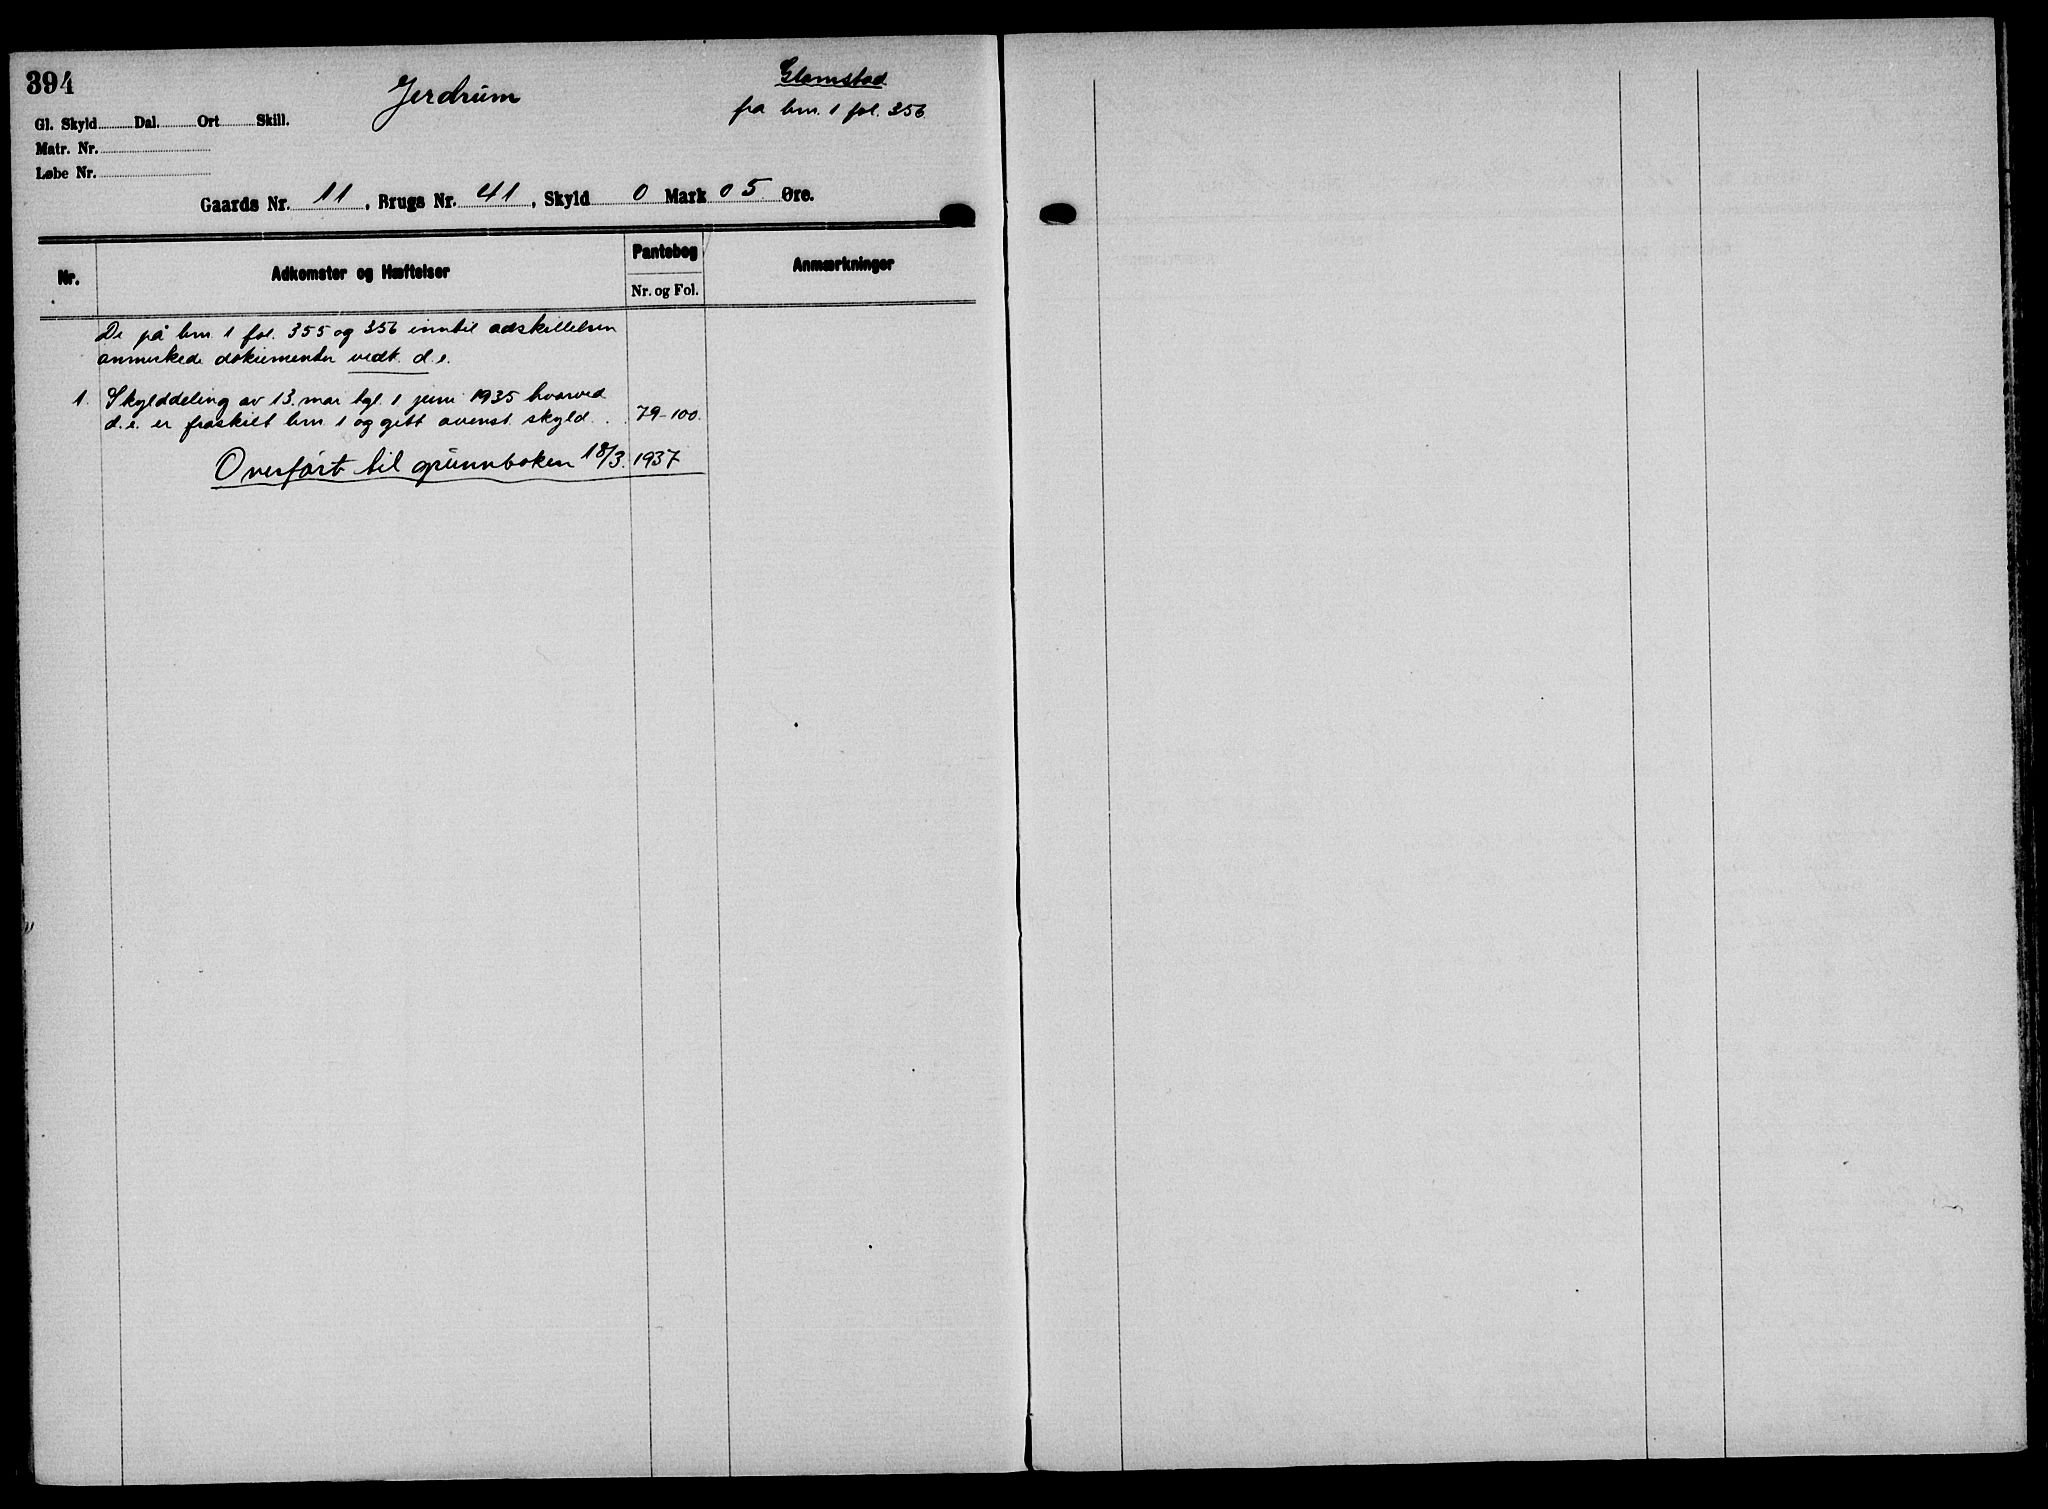 394
Jerdrum
Glomstad
fra brn. 1 fol. 356
Gl. Skyld Dal. Ort Skill.
Matr. Nr.
Løbe Nr.
Gaards Nr. 11, Brugs Nr. 41, Skyld 0 Mark 05 Øre.
Nr. Adkomster og Hæftelser Pantebog Anmærkninger
Nr. og Fol.
De på brn. 1 fol. 355 og 356 inntil adskillelsen
anmerkede dokumenter vedk. d.e.
1. Skylddeling av 13. mai tgl. 1 juni 1935 hvorved
d.e. er fraskilt brn 1 og gitt ovenst. skyld . . 79-100.
Overført til grunnboken 18/3. 1937